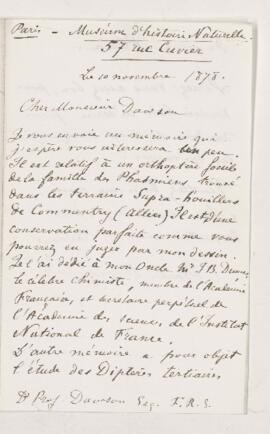 Paris - Muséum d'histoire Naturelle
57 rue Cuvier
Le 10 novembre 1878.
Cher Monsieur Dawson
Je vous envoie un mémoire qui
j'espère vous intéressera bien peu.
Il est relatif à un orthoptère fossile
de la famille des Phasmiens trouvé
dans les terrains Supra-houillers
de Commentry (Allier) Il est d'une
conservation parfaite comme vous
pourrez en juger par mon dessin.
Je l'ai dédié à mon Oncle Mr J B Dumas,
le célèbre chimiste, membre de l'Académie
Française, et secrétaire perpétuel de
l'Académie des sciences de l'Institut
National de France.
L'autre mémoire a pour objet
l'étude des Diptères tertiaires
Dr Prof. Dawson Esq. F.R.S.